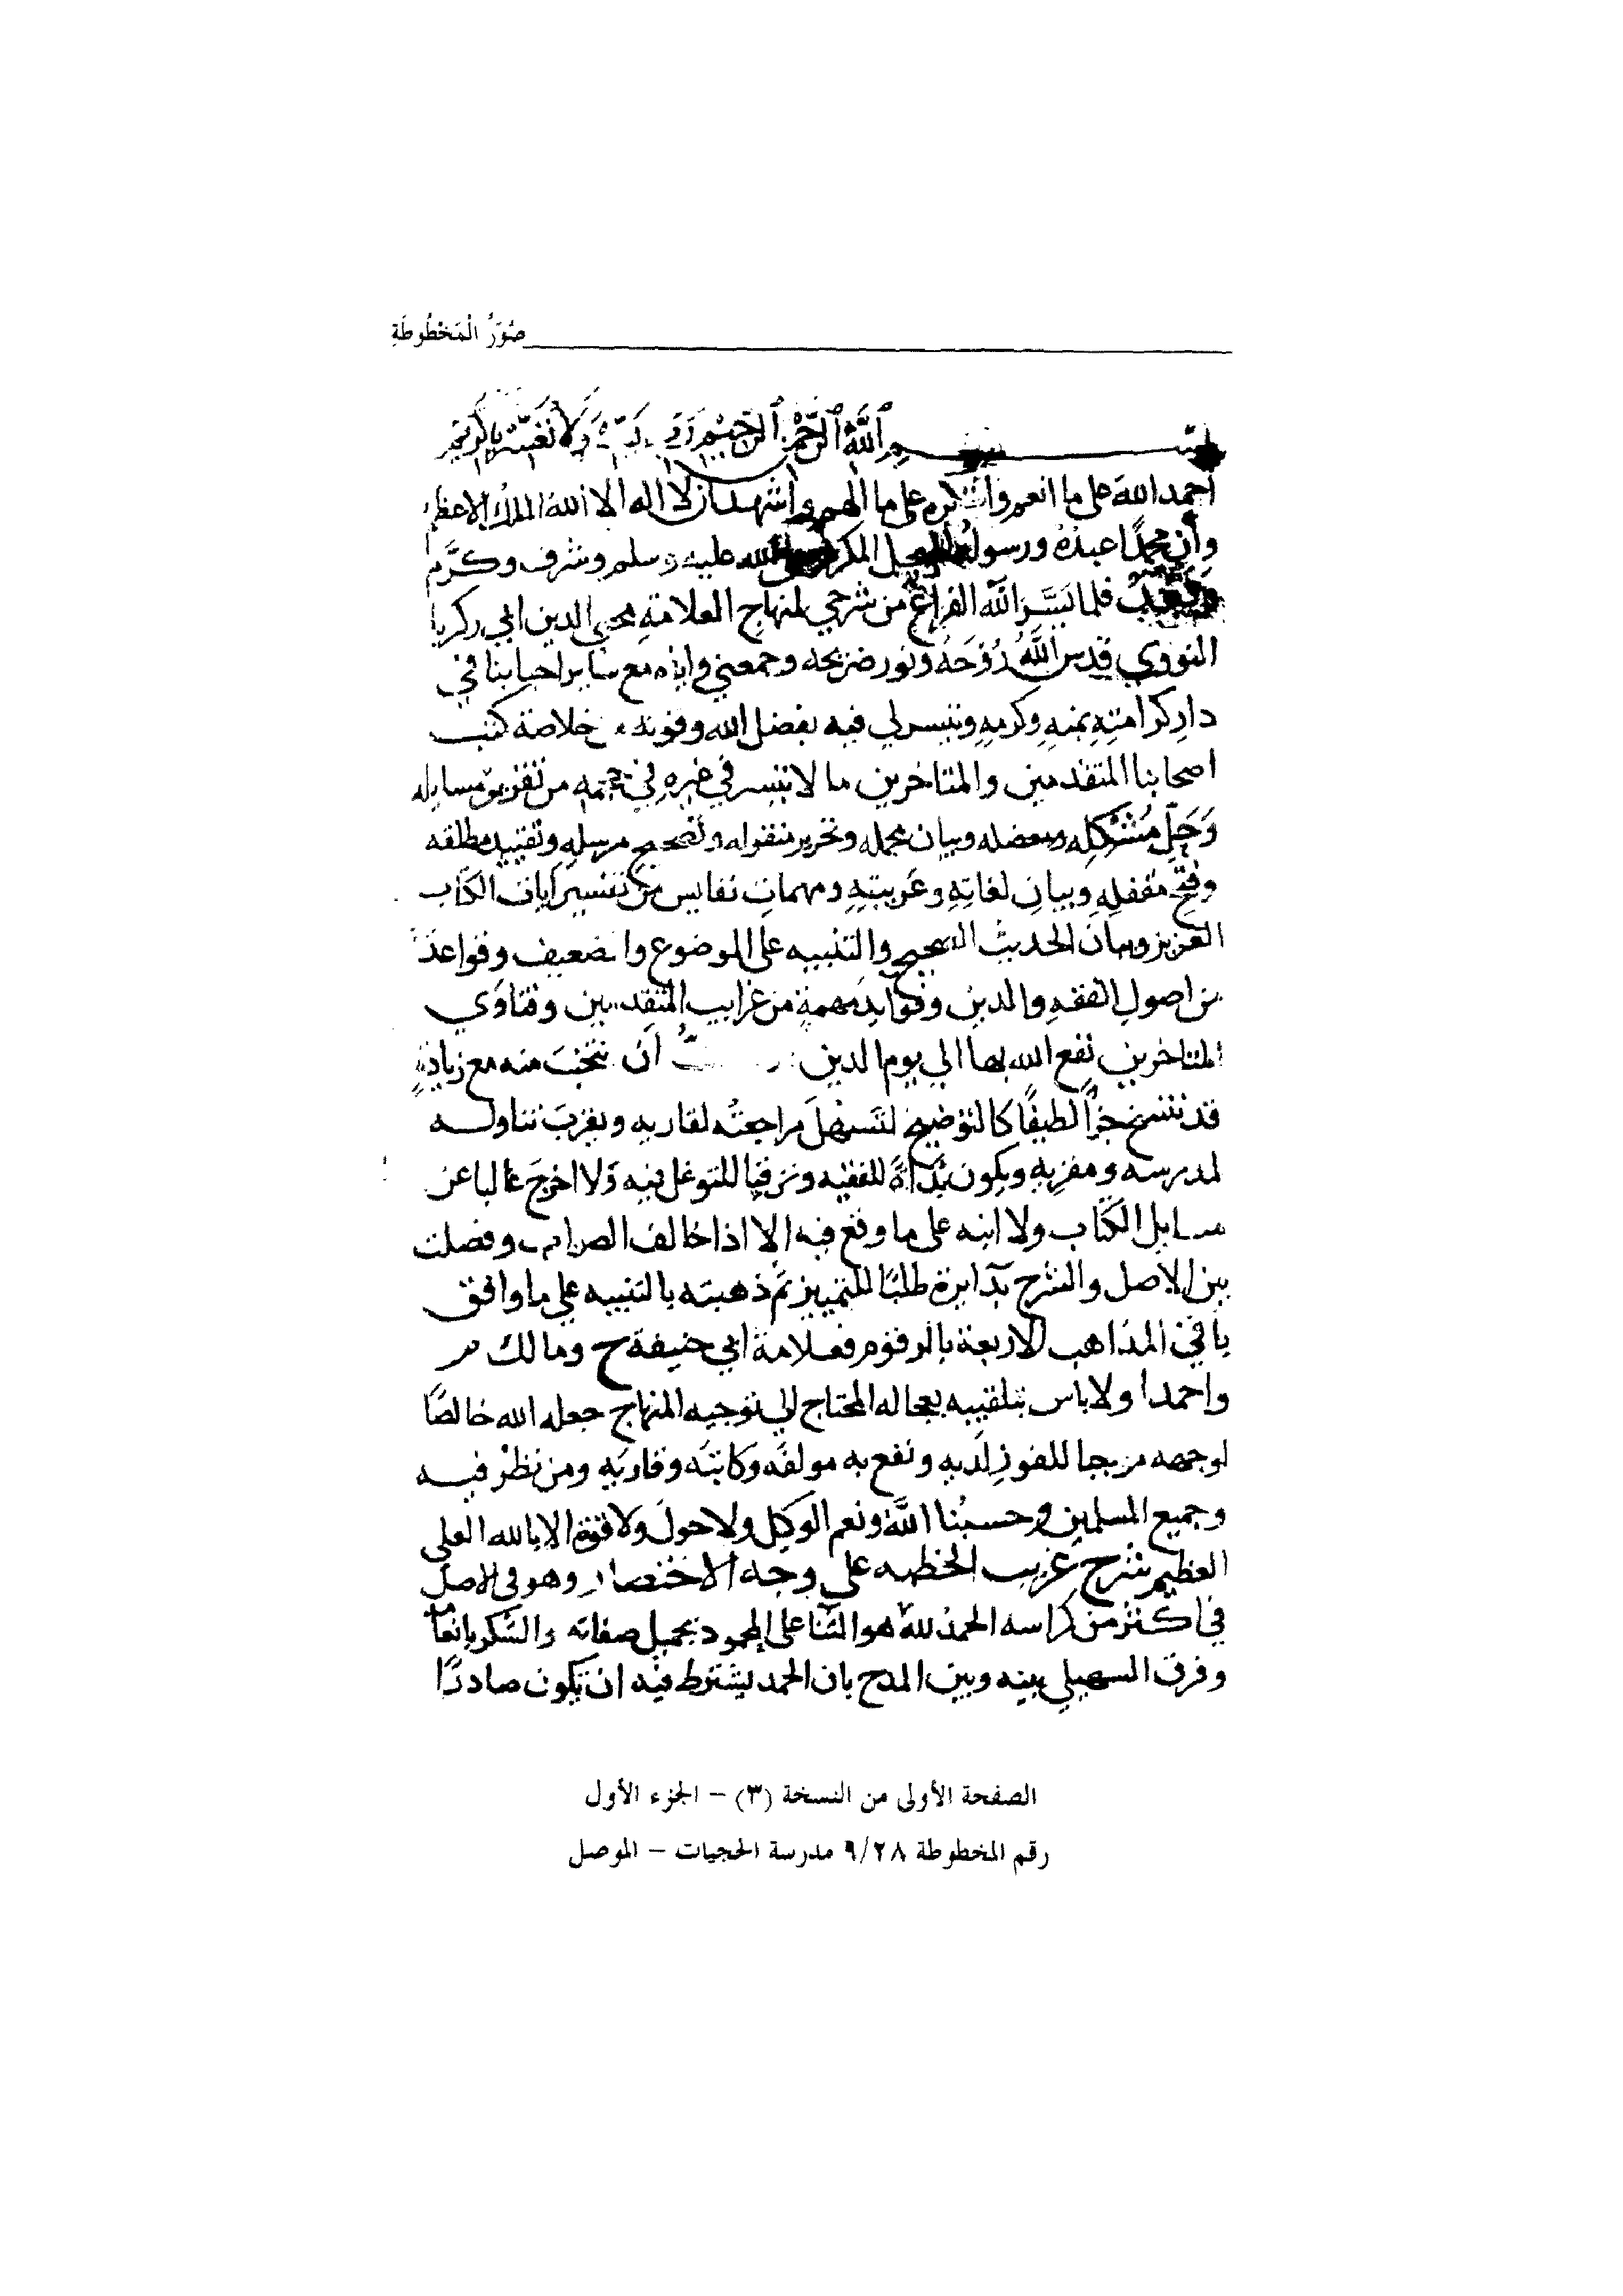 صُوَرُ الْمَخْطُوطَةِ
بسم اللَّه الرَّحْمن الرَّحِيْمِ
احمد الله على ما انعم واشكره على ما الهم واشهد ان لا اله الا الله الملك الاعظم
وأن محمدًا عبدُهُ ورسولُهُ المكرم صلى الله عليه وسلم وشرف وكرَّم
وبعد فلما يَسَّرَ اللَّه الفراغ من شرحي لمنهاج العلامةِ محيي الدين ابي زكريا
النووي قدس اللَّهُ رُوْحَهُ ونور ضريحه وجمعني واياه مع ساير احبابنا في
دارِ كرامتِهِ بمنهِ وكرمهِ وتيسر لي فيه بفضل الله وقوته خلاصة كتب
اصحابنا المتقدمين والمتاخرين ما لا تيسر في غيرهِ في حجمه من تقرير مسايله
وَحَلّ مُشْكِلِه ومعضله وبيان مجمله وتحرير منقوله وتصحيح مرسلهِ وتقييد مطلقه
وفتح مقفلهِ وبيانِ لغاتِهِ وعَربيتِهِ ومهماتِ نفايس من تفسير آيات الكتاب
العزيز وبيان الحديث الصحيح والتنبيه على الموضوع والضعيف وقواعد
من اصول الفقهِ والدين وفوايد مهمة من غرايب المتقدمين وفتاوَي
المتاخرين نفع الله بها الي يوم الدين أن ننتخبَ منه مع زيادةٍ
قد تسنح جزأً لطيفًا كالتوضيح لتَسهُلَ مراجعتُه لقاريه ويقربَ تناوله
لمدرسه ومقريهِ ويكون بُدَاةً للفقيه وترقيا للتوغل فيه ولا اخرجَ غالبا عن
مسايل الكتاب ولا انبه على ما وقع فيه الا اذا خالف الصواب وفصلت
بين الاصل والشرح بدايرة طلبًا للتمييز ثم ذهبته بالتنبيه علي ما وافق
باقي المذاهب الاربعة بالرقوم فعلامة ابي حنيفة ح ومالك م
واحمد ا ولا باس بتلقيبه بعجالة المحتاج الي توجيه المنهاج جعله الله خالصًا
لوجهه مريحا للفوزِ لَديهِ ونفع به مولفَه وكاتبَه وقاريَهِ ومن نظرْ فيه
وجميع المسلمين وحسبُنا اللَّه ونعم الوكيل ولا حولَ ولا قوة الا بالله العلي
العظيم شرح غريب الخطبه علي وجه الاختصار وهو في الاصل
في اكثر من كراسه الحمدُ للَّه هو الثَّنا على المحمود بجميل صفاته والشكر بانعامه
وفرق السهيلي بينه وبين المدح بان الحمد يشترط فيه ان يكون صادرًا
الصفحة الأولى من النسخة (٣) – الجزء الأول
رقم المخطوطة ٩/٢٨ مدرسة الحجيات – الموصل